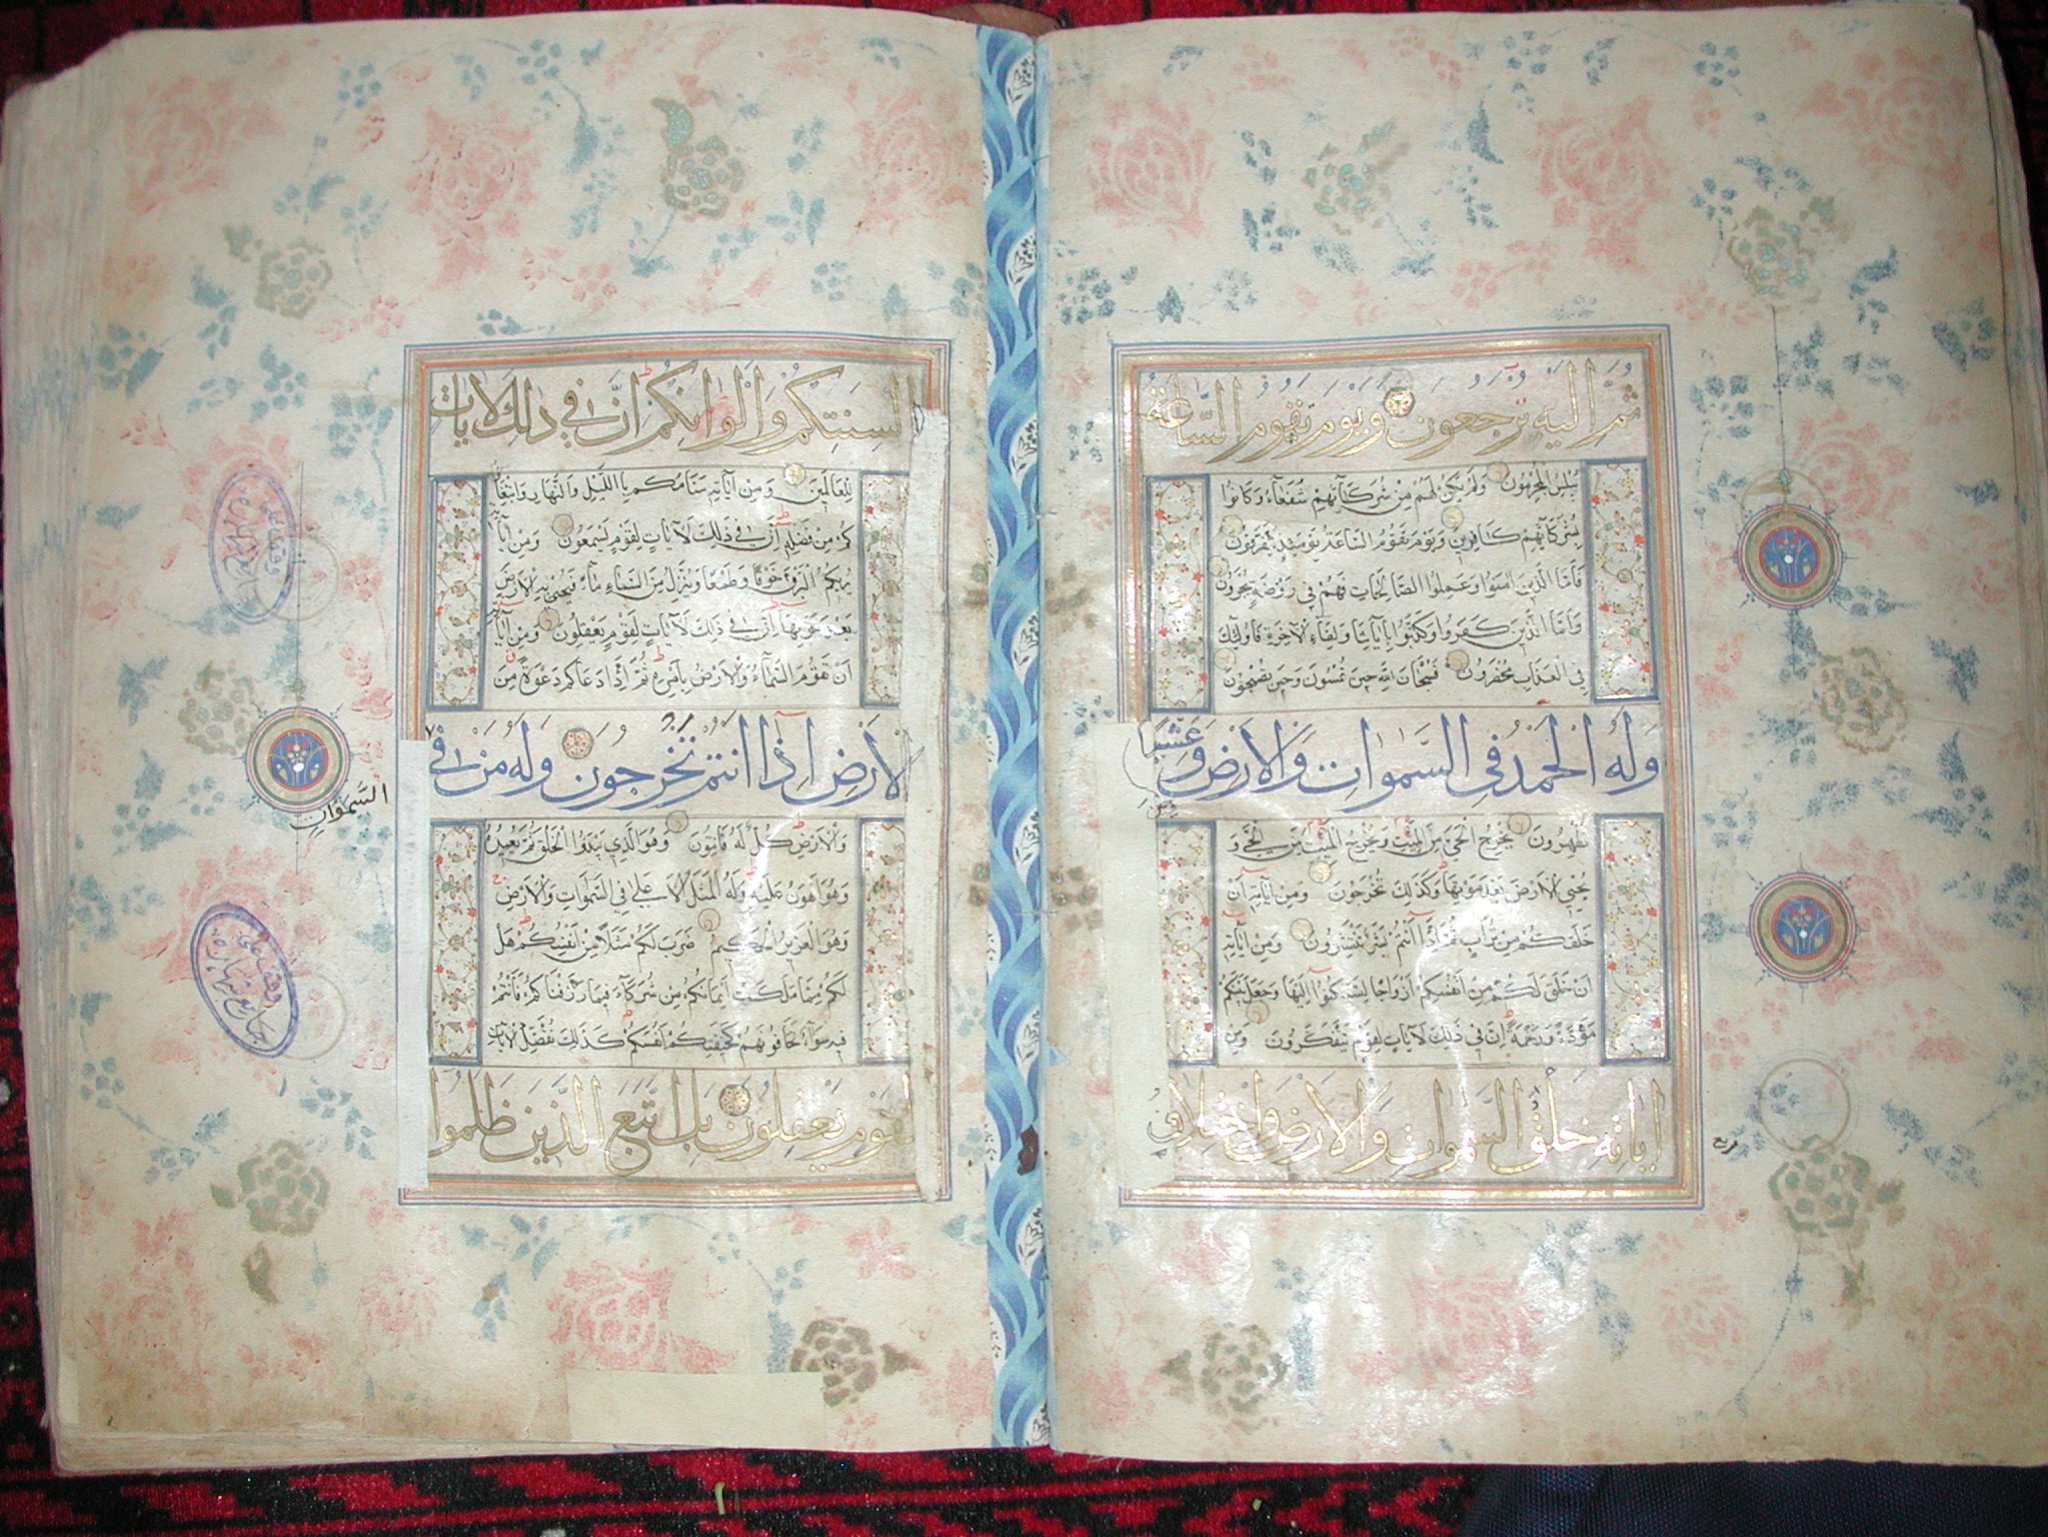 ثُمَّ اِلَيهِ تُرجَعُونَ وَيَومَ تَقُومُ السَّاعَةُ
يُبْلِسُ الْمُجْرِمُونَ وَلَمْ يَكُنْ لَهُمْ مِنْ شُرَكَآئِهِمْ شُفَعَآءُ وَكَانُوا
بِشُرَكَآئِهِمْ كَافِرِينَ وَيَوْمَ تَقُومُ السَّاعَةُ يَوْمَئِذٍ يَتَفَرَّقُونَ
فَاَمَّا الَّذِينَ اٰمَنُوا وَعَمِلُوا الصَّالِحَاتِ فَهُمْ فِي رَوْضَةٍ يُحْبَرُونَ
وَاَمَّا الَّذِينَ كَفَرُوا وَكَذَّبُوا بِاٰيَاتِنَا وَلِقَآءِ الْاٰخِرَةِ فَاُولٰئِكَ
فِي الْعَذَابِ مُحْضَرُونَ فَسُبْحَانَ اللّٰهِ حِينَ تُمْسُونَ وَحِينَ تُصْبِحُونَ
وَلَهُ الْحَمْدُ فِي السَّمٰوَاتِ وَالْاَرْضِ وَعَشِيًّا
وَحِينَ
تُظْهِرُونَ يُخْرِجُ الْحَيَّ مِنَ الْمَيِّتِ وَيُخْرِجُ الْمَيِّتَ مِنَ الْحَيِّ وَ
يُحْيِي الْاَرْضَ بَعْدَ مَوْتِهَا وَكَذٰلِكَ تُخْرَجُونَ وَمِنْ اٰيَاتِهٖ اَنْ
خَلَقَكُمْ مِنْ تُرَابٍ ثُمَّ اِذَآ اَنْتُمْ بَشَرٌ تَنْتَشِرُونَ وَمِنْ اٰيَاتِهٖ
اَنْ خَلَقَ لَكُمْ مِنْ اَنْفُسِكُمْ اَزْوَاجًا لِتَسْكُنُوا اِلَيْهَا وَجَعَلَ بَيْنَكُمْ
مَوَدَّةً وَرَحْمَةً اِنَّ فِي ذٰلِكَ لَاٰيَاتٍ لِقَوْمٍ يَتَفَكَّرُونَ وَمِنْ
اٰيَاتِهٖ خَلْقُ السَّمٰوَاتِ وَالْاَرْضِ وَاخْتِلَافُ
اَلْسِنَتِكُمْ وَاَلْوَانِكُمْ اِنَّ فِي ذٰلِكَ لَاٰيَاتٍ
لِلْعَالَمِينَ وَمِنْ اٰيَاتِهٖ مَنَامُكُمْ بِاللَّيْلِ وَالنَّهَارِ وَابْتِغَاؤُ
كُمْ مِنْ فَضْلِهٖ اِنَّ فِي ذٰلِكَ لَاٰيَاتٍ لِقَوْمٍ يَسْمَعُونَ وَمِنْ اٰيَاتِهٖ
يُرِيكُمُ الْبَرْقَ خَوْفًا وَطَمَعًا وَيُنَزِّلُ مِنَ السَّمَاءِ مَآءً فَيُحْيِي بِهِ الْاَرْضَ
بَعْدَ مَوْتِهَا اِنَّ فِي ذٰلِكَ لَاٰيَاتٍ لِقَوْمٍ يَعْقِلُونَ وَمِنْ اٰيَاتِهٖ
اَنْ تَقُومَ السَّمَآءُ وَالْاَرْضُ بِاَمْرِهٖ ثُمَّ اِذَا دَعَاكُمْ دَعْوَةً مِنَ
الْاَرْضِ اِذَا اَنْتُمْ تَخْرُجُونَ وَلَهُ مَنْ فِي
السَّمٰوَاتِ
وَالْاَرْضِ كُلٌّ لَهُ قَانِتُونَ وَهُوَ الَّذِي يَبْدَؤُا الْخَلْقَ ثُمَّ يُعِيدُهُ
وَهُوَ اَهْوَنُ عَلَيْهِ وَلَهُ الْمَثَلُ الْاَعْلٰى فِي السَّمٰوَاتِ وَالْاَرْضِ
وَهُوَ الْعَزِيزُ الْحَكِيمُ ضَرَبَ لَكُمْ مَثَلًا مِنْ اَنْفُسِكُمْ هَلْ
لَكُمْ مِمَّا مَلَكَتْ اَيْمَانُكُمْ مِنْ شُرَكَآءَ فِيمَا رَزَقْنَاكُمْ فَاَنْتُمْ
فِيهِ سَوَآءٌ تَخَافُونَهُمْ كَخِيفَتِكُمْ اَنْفُسَكُمْ كَذٰلِكَ نُفَصِّلُ الْاٰيَاتِ
لِقَوْمٍ يَعْقِلُونَ بَلِ اتَّبَعَ الَّذِينَ ظَلَمُوا